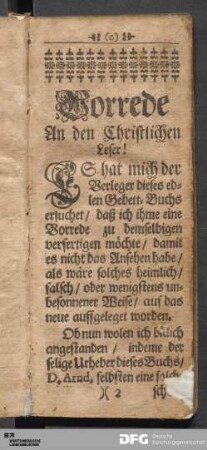 (o)
Vorrede
An den Christlichen
Leser!
ES hat mich der
Verleger dieses ed-
len Gebett-Buchs
ersuchet / daß ich ihme eine
Vorrede zu demselbigen
verfertigen möchte / damit
es nicht das Ansehen habe /
als wäre solches heimlich /
falsch / oder wenigstens un-
besonnener Weise / auf das
neue auffgeleget worden.
Ob nun wolen ich
angestanden / indeme der
selige Urheber dieses Buchs /
D. Arnd, selbsten eine solch
)( 2 sch
DFG Deutsche
Forschungsgemeinschaft